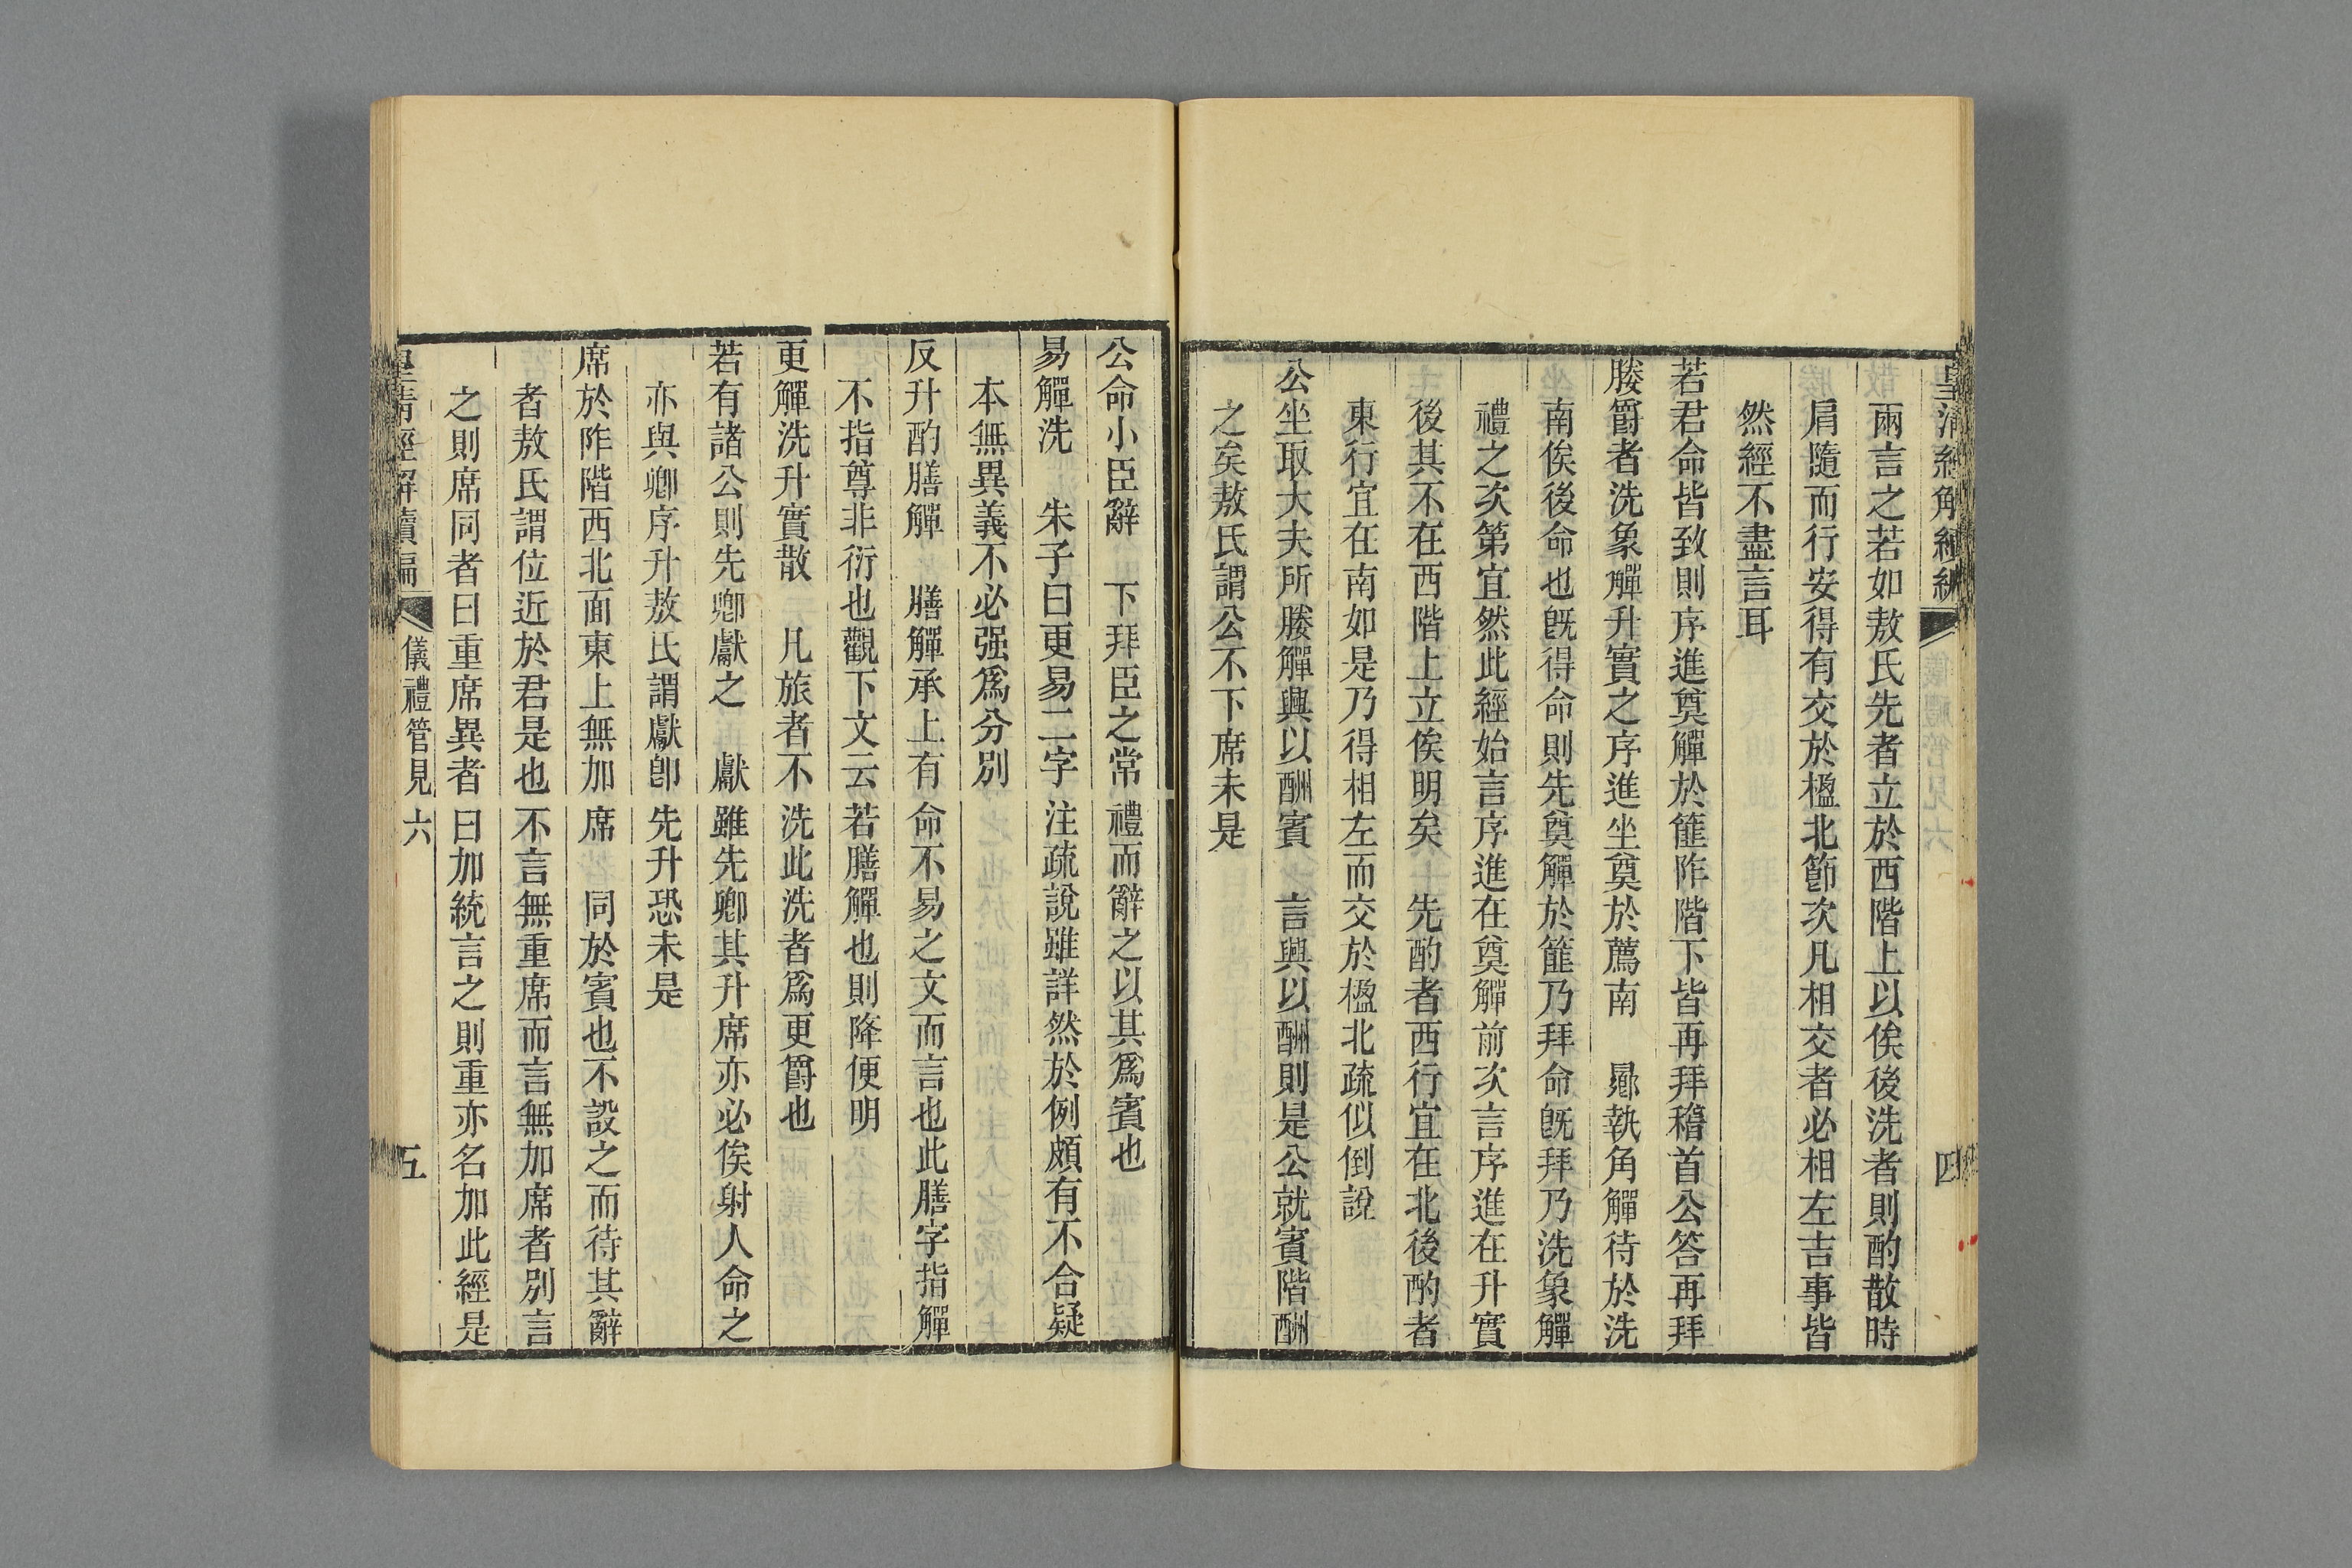 兩言之若如敖氏先者立於西階上以俟後洗者則酌散時
肩隨而行安得有交於楹北節次凡相交者必相左吉事皆
然經不盡言耳
若君命皆致則序進奠觶於篚阼階下皆再拜稽首公答再拜
媵爵者洗象觶升實之序進坐奠於薦南　曏執角觶待於洗
南俟後命也旣得命則先奠觶於篚乃拜命旣拜乃洗象觶
禮之次第宜然此經始言序進在奠觶前次言序進在升實
後其不在西階上立俟明矣　先酌者西行宜在北後酌者
東行宜在南如是乃得相左而交於楹北疏似倒說
公坐取大夫所媵觶興以酬賓　言興以酬則是公就賓階酬
之矣敖氏謂公不下席未是
公命小臣辭　下拜臣之常禮而辭之以其爲賓也
易觶洗　朱子曰更易二字注疏說雖詳然於例頗有不合疑
本無異義不必强爲分別
反升酌膳觶　膳觶承上有命不易之文而言也此膳字指觶
不指尊非衍也觀下文云若膳觶也則降便明
更觶洗升實散　凡旅者不洗此洗者爲更爵也
若有諸公則先卿獻之　獻雖先卿其升席亦必俟射人命之
亦與卿序升敖氏謂獻卽先升恐未是
席於阼階西北面東上無加席　同於賓也不設之而待其辭
者敖氏謂位近於君是也不言無重席而言無加席者別言
之則席同者曰重席異者曰加統言之則重亦名加此經是
皇淸經解續編　儀禮管見六　五